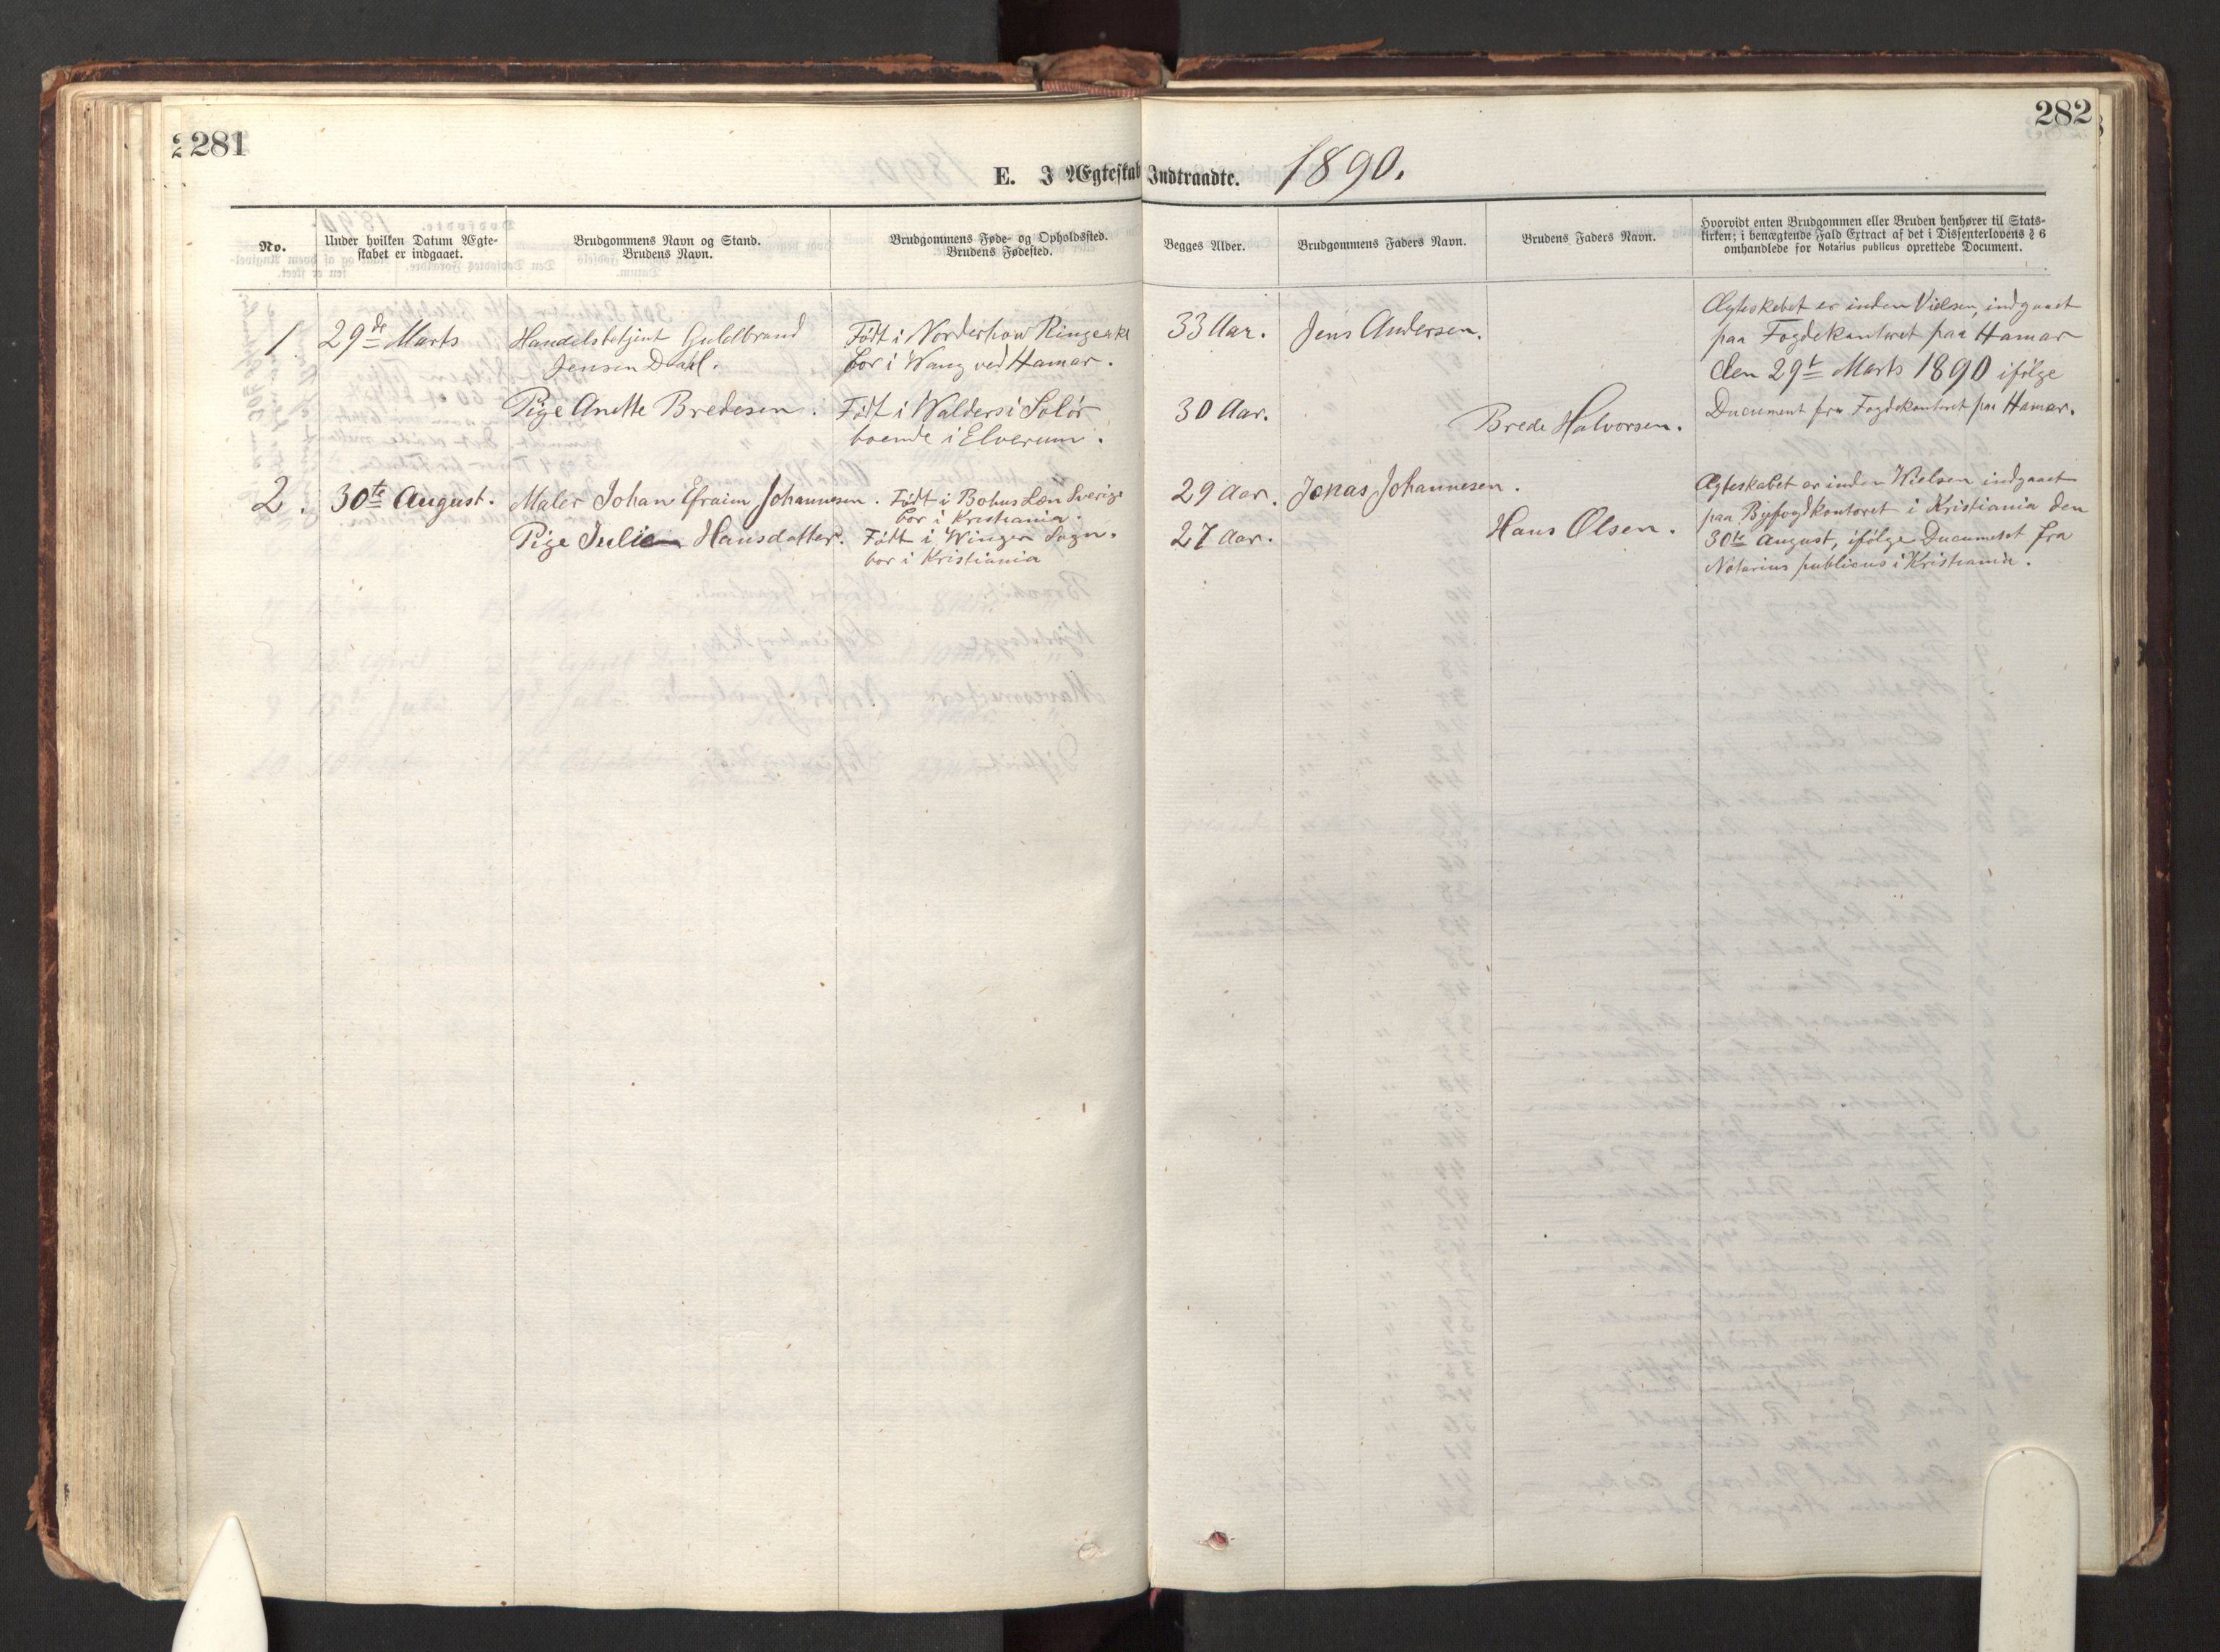 281
282
E. I Ægteskab Indtraadte. 1890.
No.
Under hvilken Datum Ægte-
skabet er indgaaet.
Brudgommens Navn og Stand.
Brudens Navn.
Brudgommens Føde- og Opholdssted.
Brudens Fødested.
Begges Alder.
Brudgommens Faders Navn.
Brudens Faders Navn.
Hvorvidt enten Brudgommen eller Bruden henhører til Stats-
kirken; i benægtende Fald Extract af det i Dissenterlovens § 6
omhandlede for Notarius publicus oprettede Document.
1.
29de Marts
Handelsbetjent Guldbrand
Jensen Dahl.
Pige Anette Bredesen.
Født i Norderhow Ringerike
bor i Wang ved Hamar.
Født i Walders i Solør
boende i Elverum.
33 Aar.
30 Aar.
Jens Andersen.
Brede Halvorsen.
Ægteskabet er inden Vielsen, indgaaet
paa Fogdekontoret paa Hamar
den 29t Marts 1890 ifølge
Ducument fra Fogdekontoret paa Hamar.
2.
30te August.
Maler Johan Efraim Johannesen.
Pige Julie Hansdatter.
Født i Bohus Læn Sverige
bor i Kristiania.
Født i Winger Sogn.
bor i Kristiania
29 Aar.
27 Aar.
Jonas Johannesen.
Hans Olsen.
Ægteskabet er inden Wielsen indgaaet
paa Byfogdkontoret i Kristiania den
30te August, ifølge Ducumetet fra
Notarius publicus i Kristiania.